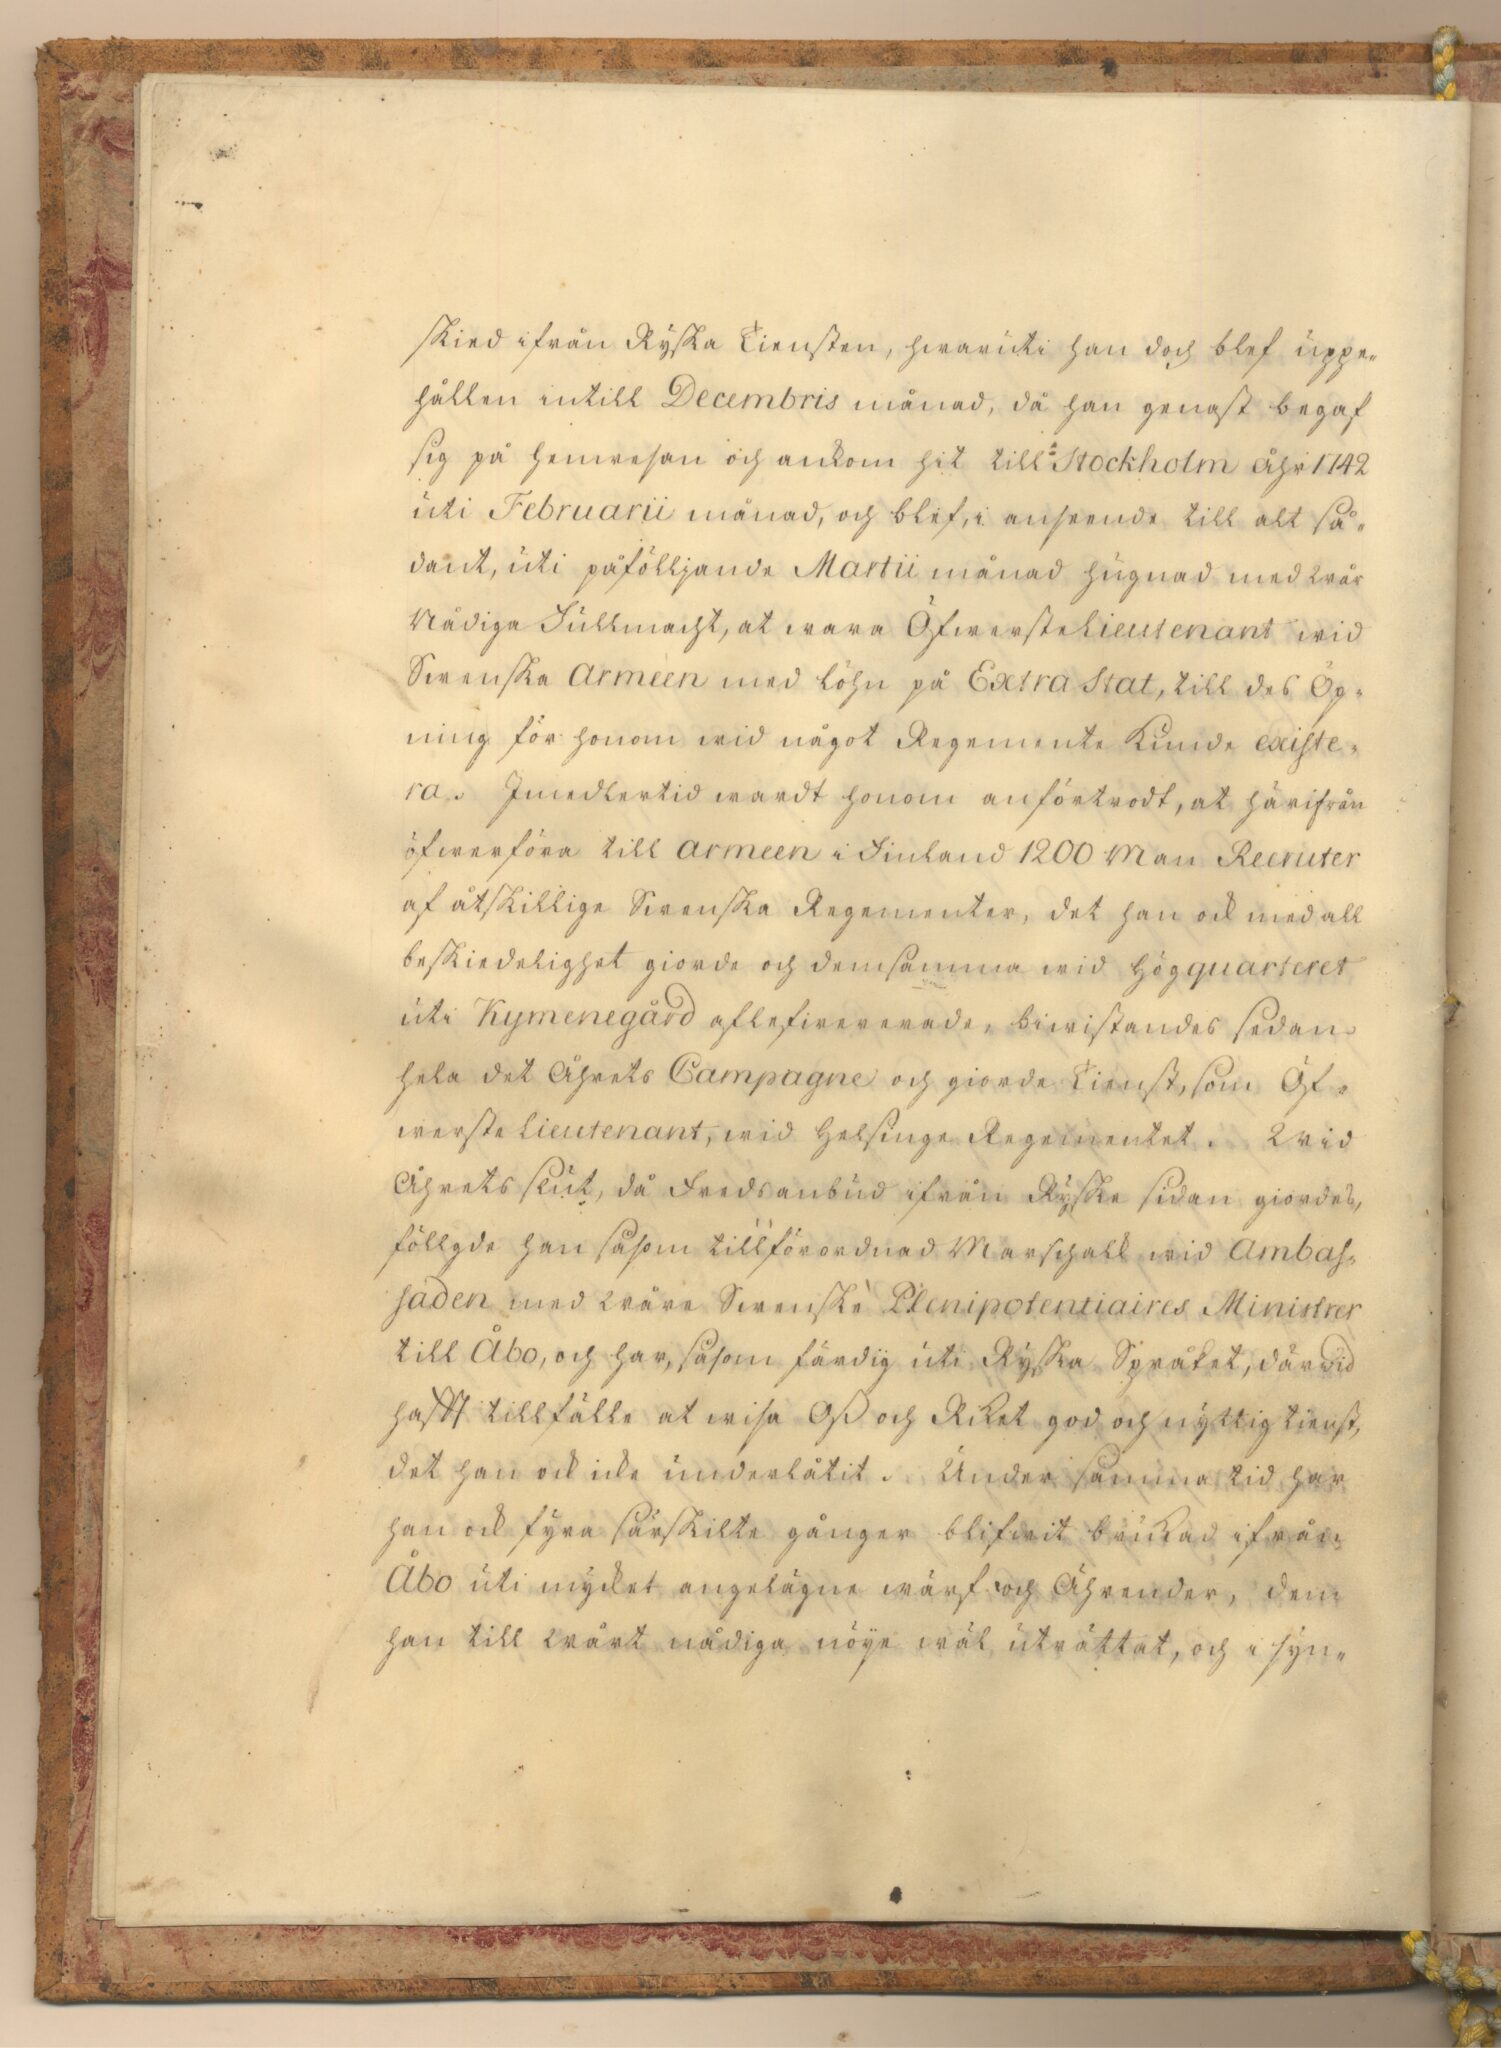 skied ifrån Ryska Tiensten, hwaruti han doch blef uppe-
hållen intill Decembris månad, då han genast begaf
sig på hemresan och ankom hit till Stockholm åhr 1742
uti Februarii månad, och blef, i anseende till alt så-
dant, uti påfölljande Martii månad hugnad med Wår
Nådiga Fullmacht, at wara ÖfwersteLieutenant wid
Swenska Armeen med Löhn på Extra Stat, till des Öp-
ning för honom wid något Regemente kunde existe-
ra. Imedlertid wardt honom anförtrodt, at härifrån
öfwerföra till Armeen i Finland 1200 Man Recruter
af åtskillige Swenska Regementer, det han ock med all
beskiedelighet giorde och demsamma wid Högquarteret
uti Kymenegård aflefwererade, biwistandes sedan
hela det Åhrets Campagne och giorde Tienst, som Öf-
wersteLieutenant, wid Helsinge Regementet. Wid
Åhrets slut, då Fredsanbud ifrån Ryske sidan giordes,
föllgde han såsom tillförordnad Marschalk wid Ambas-
saden med Wåre Swenske Plenipotentiaires Ministrer
till Åbo, och har, såsom färdig uti Ryska Språket, därwid
hafft tillfälle at wisa Oß och Riket god och nyttig tienst,
det han ock icke underlåtit. Under samma tid har
han ock fyra särskilte gånger blifwit brukad ifrån
Åbo uti mycket angelägne wärf och Ährender, dem
han till Wårt nådiga nöye wäl uträttat, och i syn-